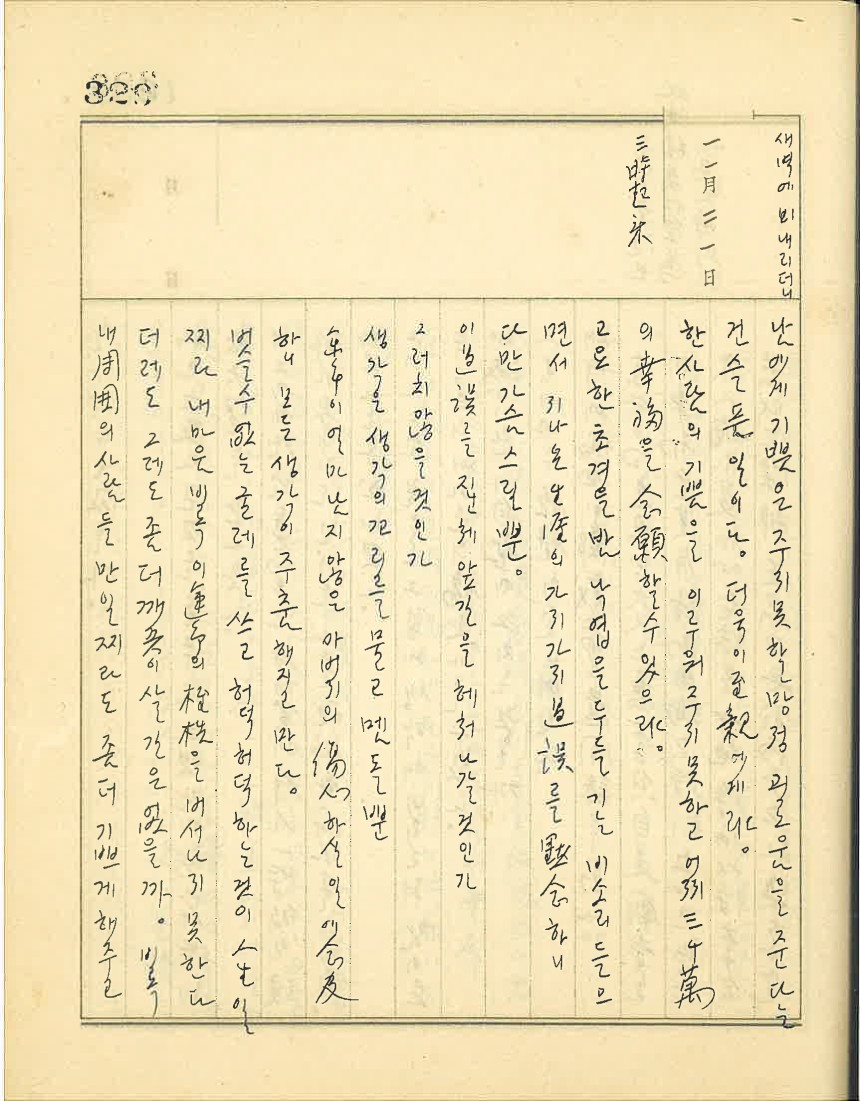 새벽에 비 내리더니
一一月 二一日
三時起来
남에게 기쁨은 주지 못할망정 괴로움을 준다는
건 슬픈 일이다。 더욱이 至親에게랴。
한사람의 기쁨을 이루워 주지 못하고 어찌 三千萬
의 幸福을 念願할 수 있으랴。
고요한 초겨울 밤 낙엽을 두들기는 비소리 들으
면서 지나온 生涯의 가지가지 過誤를 黙念하니
다만 가슴 스릴 뿐。
이 過誤를 짊어지고 앞길을 헤처 나갈것인가
그러치 않을것인가
생각은 생각의 꼬리를 물고 맴돌 뿐
余年이 얼마 남지 않은 아버지의 傷心하실 일에 念及
하니 모든 생각이 주춤해질 만다。
벗을수 없는 굴레를 쓰고 허덕허덕 하는것이 人生일
찌라 내 마음 비록 이 運命의 桎梏을 버서나지 못한다
더래도 그래도 좀 더 깨끗이 살 길은 없을까。 비록
내 周囲의 사람들 만일찌라도 좀 더 기쁘게 해주고